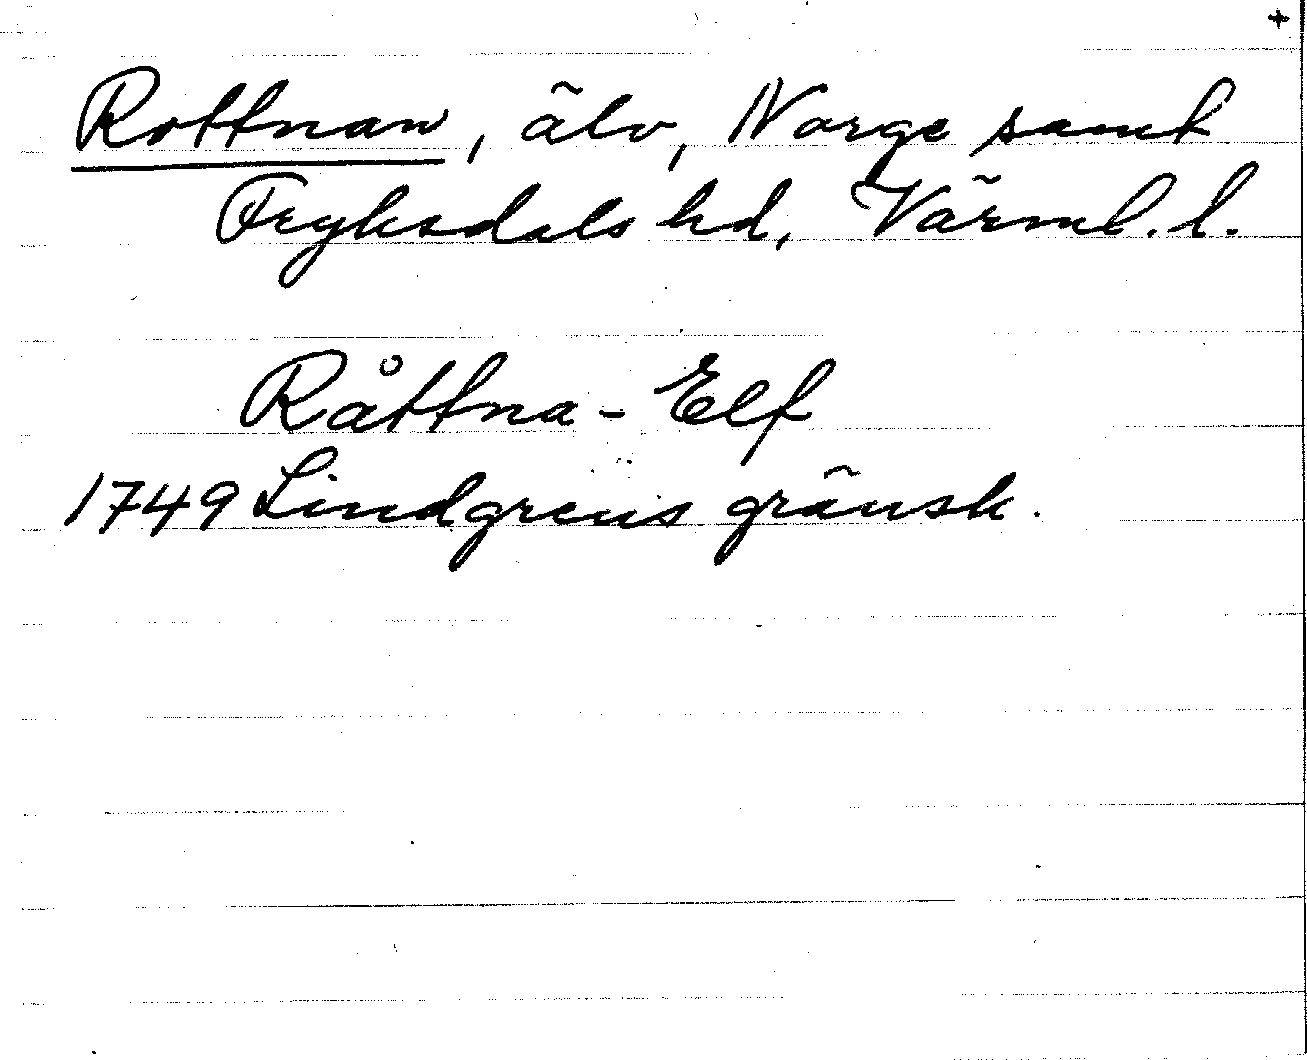 +
Rottnan, älv, Norge samt
Fryksdals hd, Värml. l.
Råttna-Elf
1749 Lindgrens gränsk.